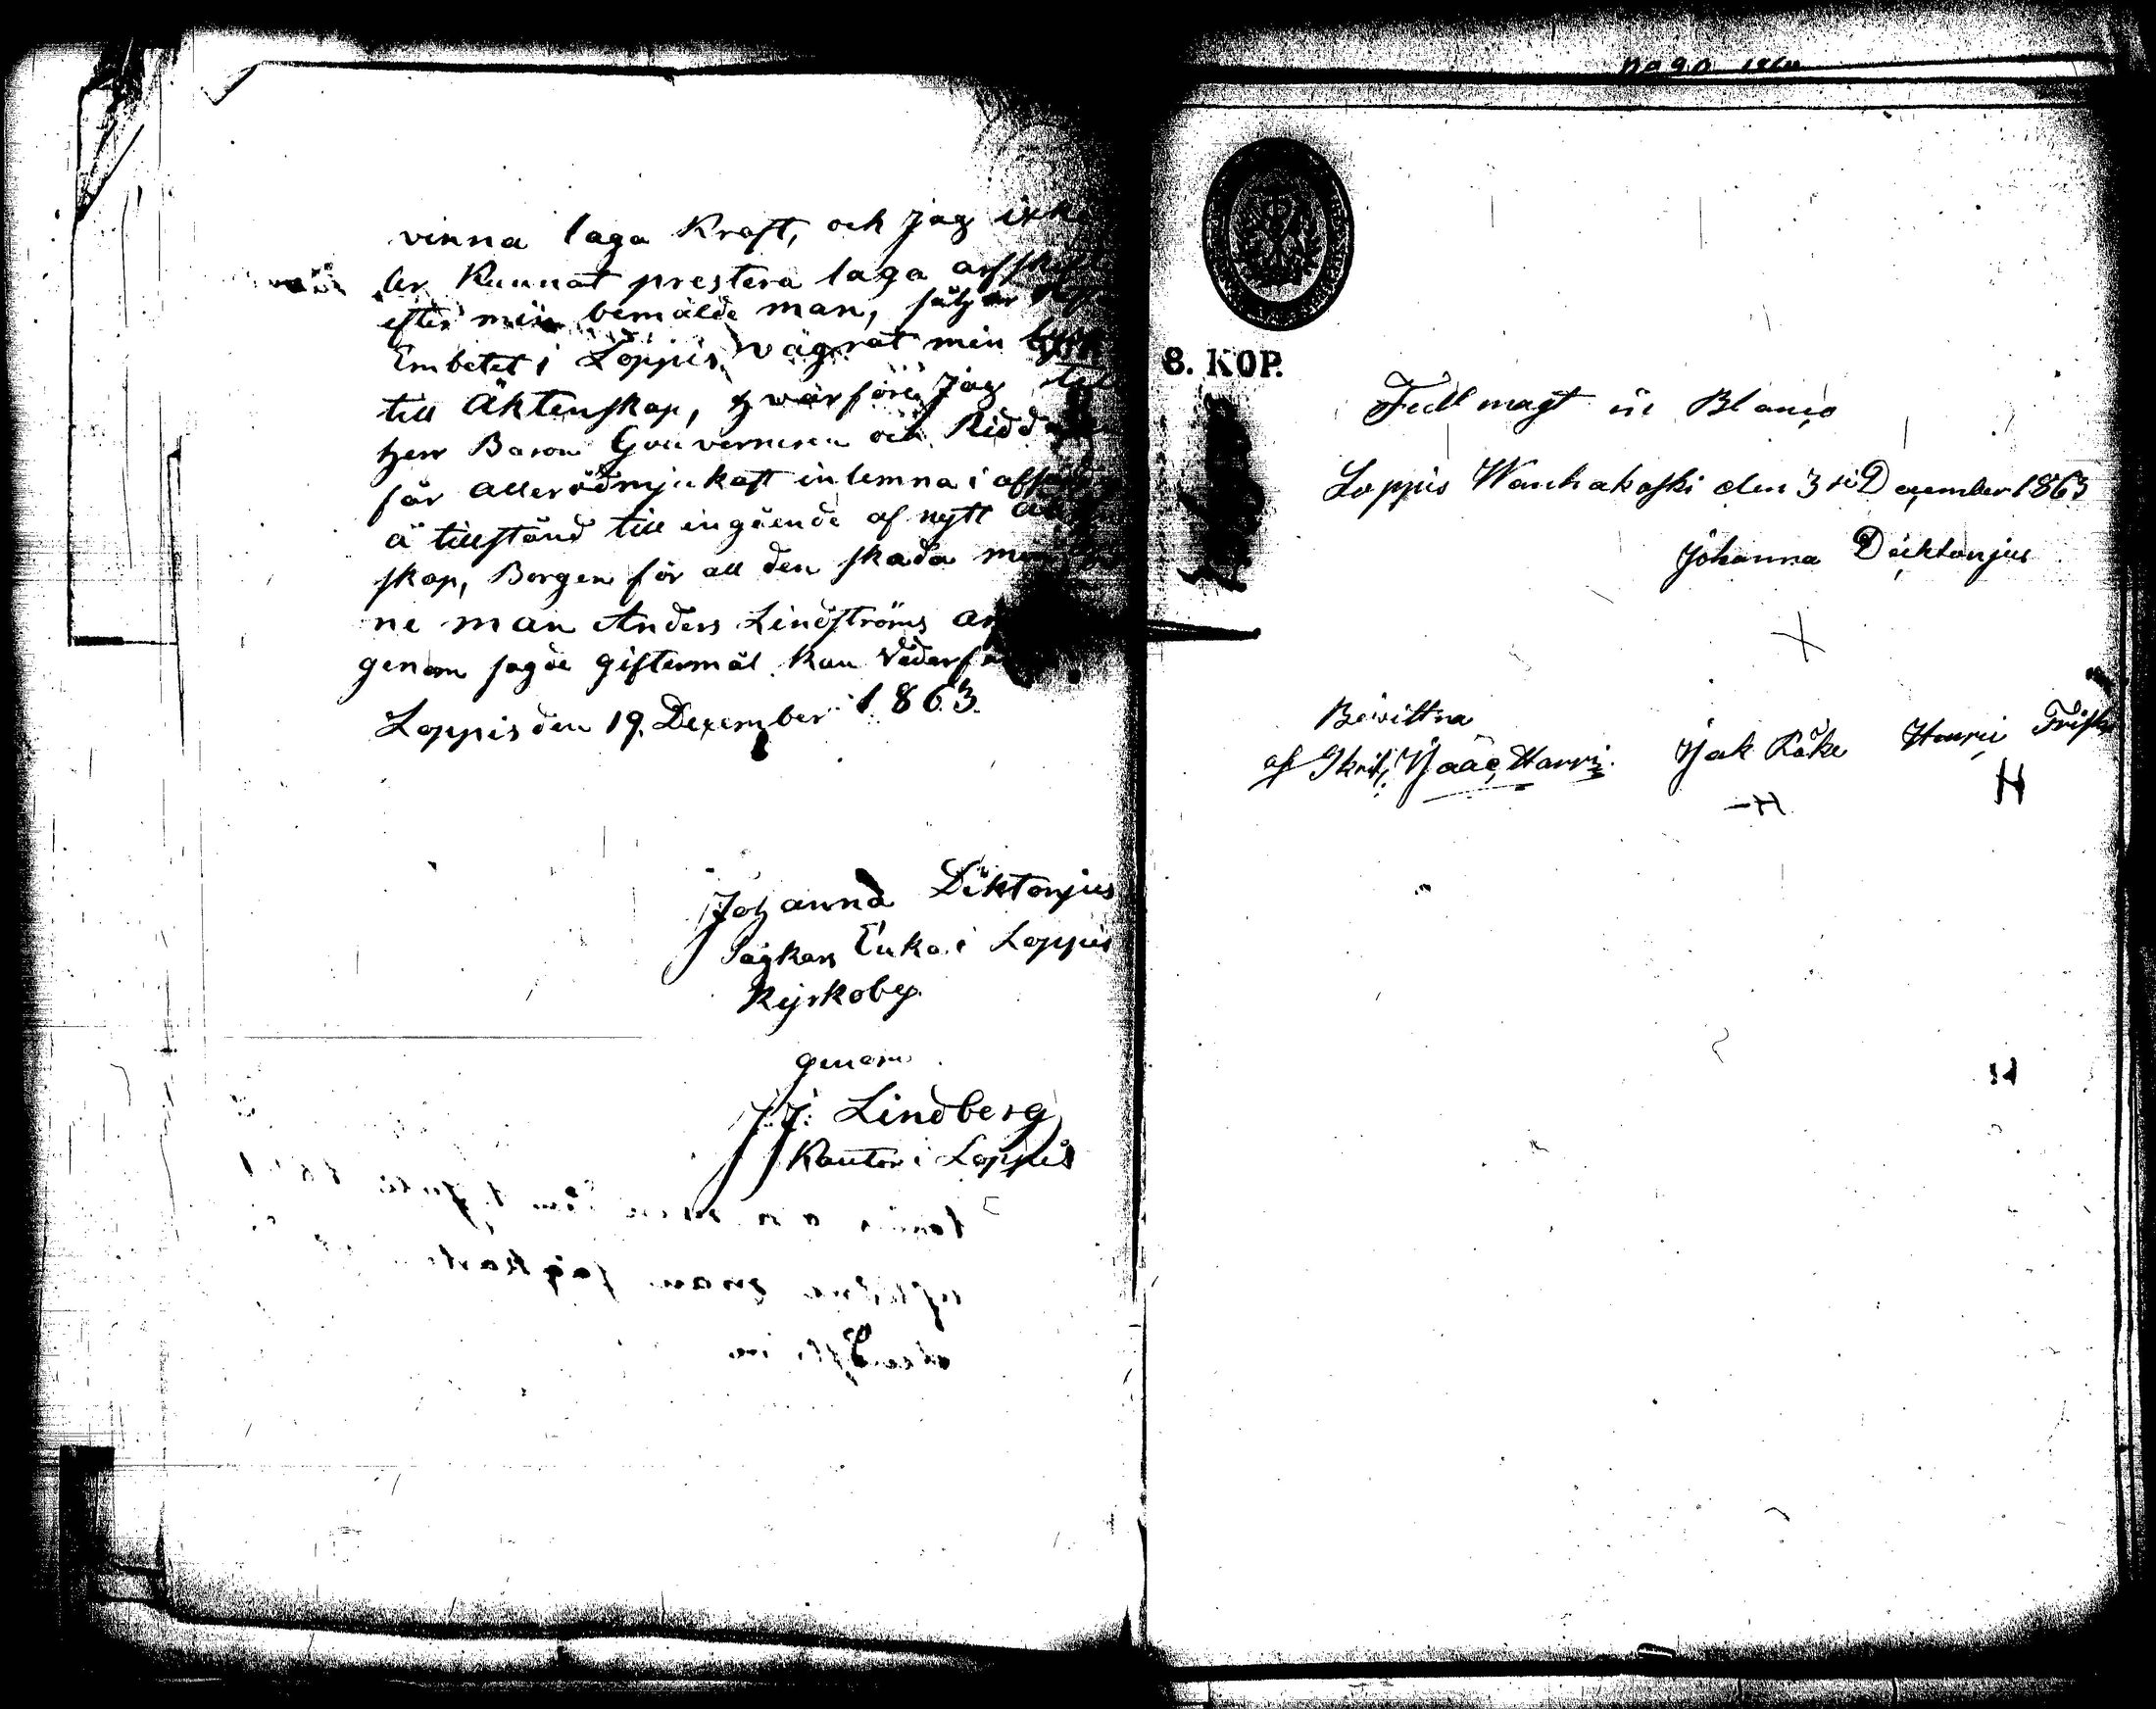 vinna laga Kraft, och jag icke
ler Kunnat prestera laga arfskifte
efter min bemälde man,
Embetet i Loppis, vägrat min
till Äktenskap, hvarföre jag till
Herr Baron Gouverneren och Riddaren
får alleródmjukast inlemna i
å tillstånd till ingående af nytt
skap, Borgen för all den skada
ne man Anders Lindströms
genom sagde giftermål kan
Loppis den 19. December 1863.
Johanna Diktonjus
Sågkars Enka i Loppis
Kyrkoby.
genom
J. J. Lindberg
Kantor i Loppis
8. KOP.
Fullmagt in Blanco
Loppis Wanhakoski den 3 December 1863
Johanna Dicktonjus
Bevittna
Isaac Harri. Isak Räke Henric
H
H